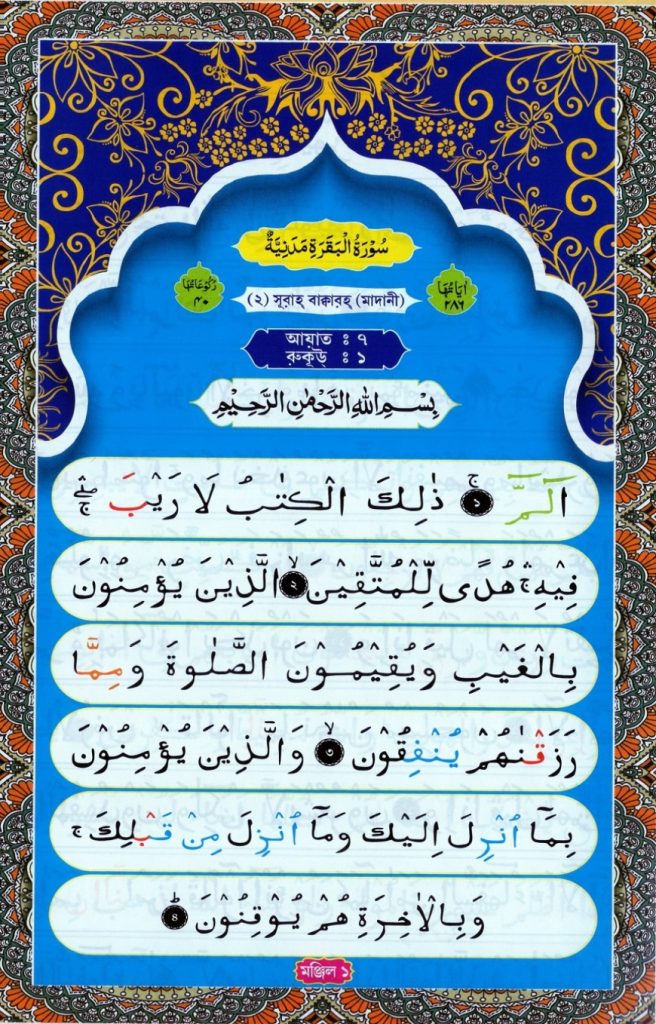 سُوْرَةُ الْبَقَرَةِ مَدَنِيَّةٌ
اٰيَاتُهَا
٢٨٦
رُكُوْعَاتُهَا
٤٠
(২) সূরাহ্ বাক্বারহ্ (মাদানী)
আয়াত : ৭
রুকূউ : ১
بِسْمِ اللهِ الرَّحْمٰنِ الرَّحِيْمِ
الٓمّٓ ۚ ১ ذٰلِكَ الْكِتٰبُ لَا رَيْبَ ۛۖۚ
فِيْهِ ۛۚ هُدًى لِّلْمُتَّقِيْنَ ۙ ২ الَّذِيْنَ يُؤْمِنُوْنَ
بِالْغَيْبِ وَيُقِيْمُوْنَ الصَّلٰوةَ وَمِمَّا
رَزَقْنٰهُمْ يُنْفِقُوْنَ ۙ ৩ وَالَّذِيْنَ يُؤْمِنُوْنَ
بِمَاۤ اُنْزِلَ اِلَيْكَ وَمَاۤ اُنْزِلَ مِنْ قَبْلِكَ ۚ
وَبِالْاٰخِرَةِ هُمْ يُوْقِنُوْنَ ؕ ৪
মঞ্জিল ১